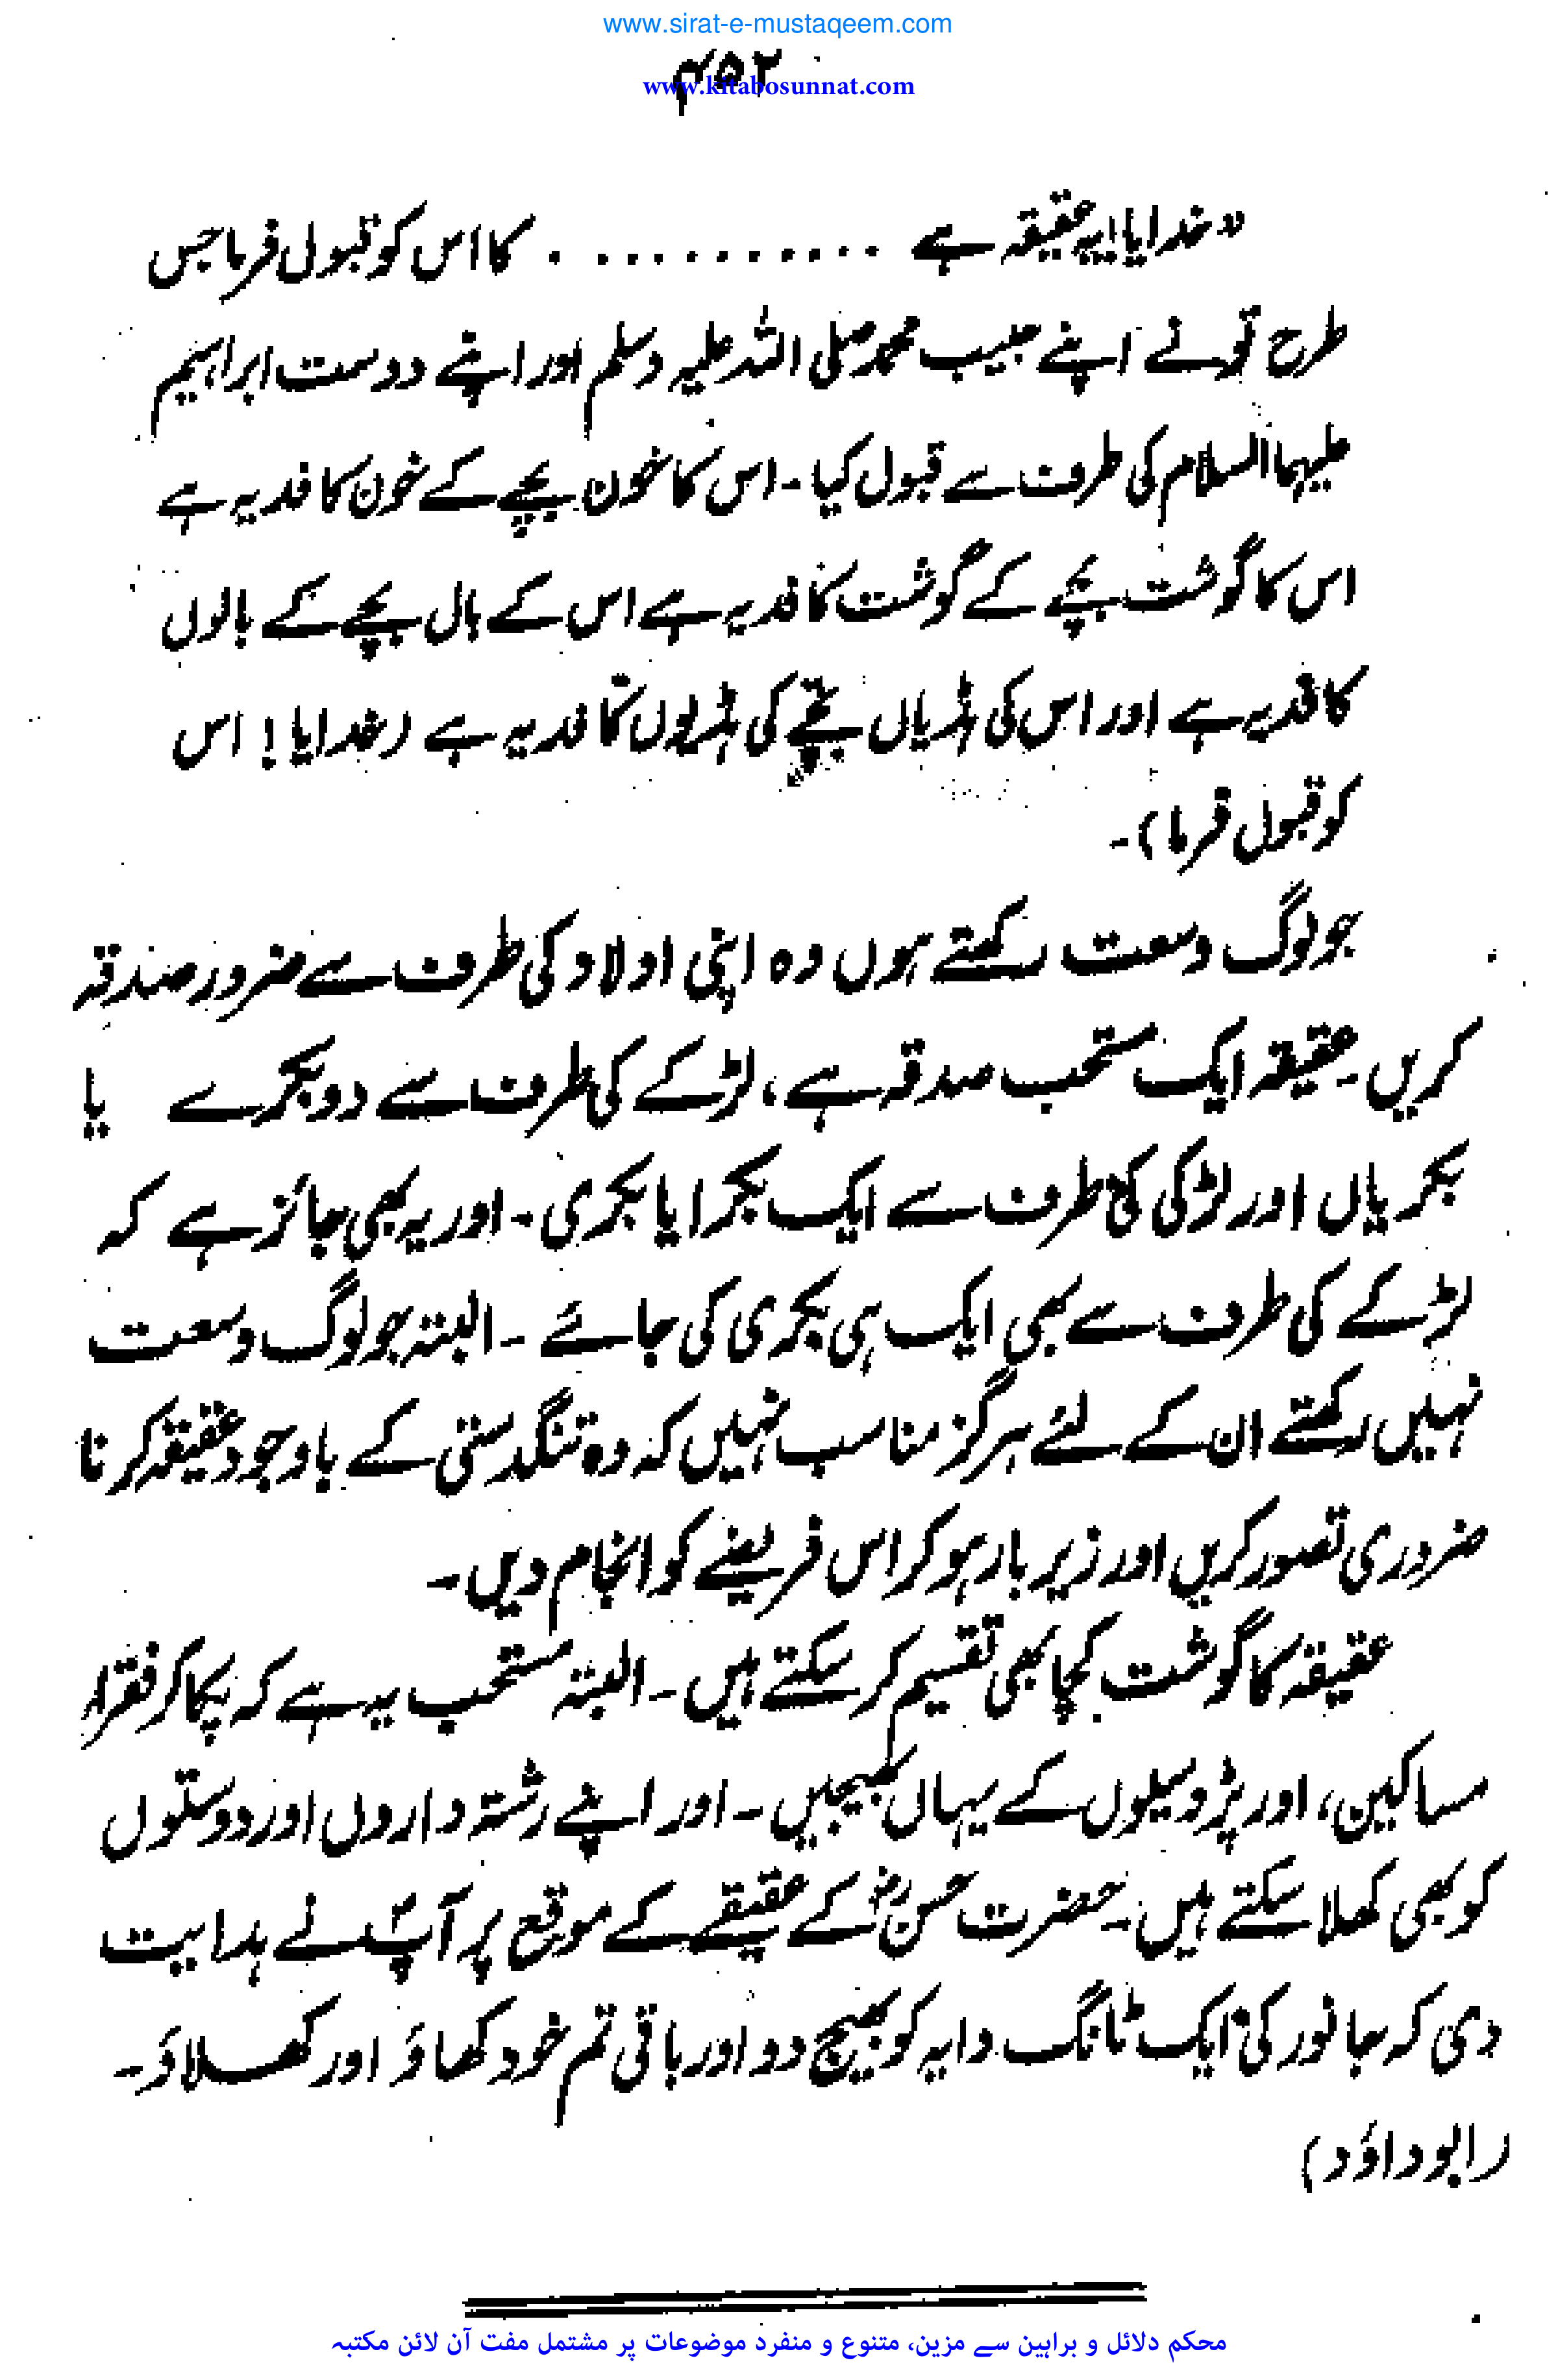 www.sirat-e-mustaqeem.com
۴۵۲
www.kitabosunnat.com
"خدایا! یہ عقیقہ ہے ........... کا اس کو قبول فرما جس
طرح تو نے اپنے حبیب محمد صلی اللہ علیہ وسلم اور اپنے دوست ابراہیم
علیہما السلام کی طرف سے قبول کیا۔ اس کا خون بچے کے خون کا فدیہ ہے
اس کا گوشت بچے کے گوشت کا فدیہ ہے اس کے بال بچے کے بالوں
کا فدیہ ہے اور اس کی ہڈیاں بچے کی ہڈیوں کا فدیہ ہے (خدایا! اس
کو قبول فرما)۔
جو لوگ وسعت رکھتے ہوں وہ اپنی اولاد کی طرف سے ضرور صدقہ
کریں۔ عقیقہ ایک مستحب صدقہ ہے، لڑکے کی طرف سے دو بکرے یا
بکریاں اور لڑکی کی طرف سے ایک بکرا یا بکری۔ اور یہ بھی جائز ہے کہ
لڑکے کی طرف سے بھی ایک ہی بکری کی جائے۔ البتہ جو لوگ وسعت
نہیں رکھتے ان کے لئے ہرگز مناسب نہیں کہ وہ تنگدستی کے باوجود عقیقہ کرنا
ضروری تصور کریں اور زیر بار ہو کر اس فریضے کو انجام دیں۔
عقیقہ کا گوشت کچا بھی تقسیم کر سکتے ہیں۔ البتہ مستحب یہ ہے کہ پکا کر فقراء
مساکین، اور پڑوسیوں کے یہاں بھیجیں۔ اور اپنے رشتہ داروں اور دوستوں
کو بھی کھلا سکتے ہیں۔ حضرت حسنؓ کے عقیقے کے موقع پر آپؐ نے ہدایت
دی کہ جانور کی ایک ٹانگ دایہ کو بھیج دو اور باقی تم خود کھاؤ اور کھلاؤ۔
(ابوداؤد)
محکم دلائل و براہین سے مزین، متنوع و منفرد موضوعات پر مشتمل مفت آن لائن مکتبہ